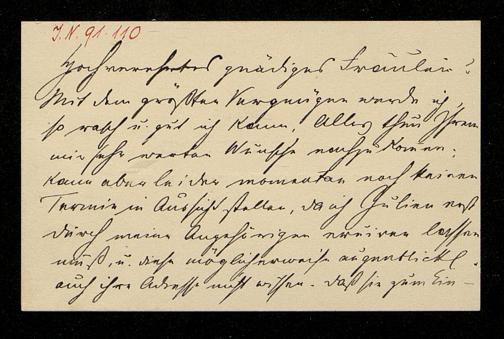 J.N. 91.110
Hochverehrtes gnädiges Fräulein!
Mit dem größten Vergnügen werde ich,
so rasch u. gut ich kann, Alles thun Ihrem
mir sehr werten Wunsche nachzukomen;
kann aber leider momentan noch keinen
Termin in Aussicht stellen, da ich Julien erst
durch meine Angehörigen eruiren lassen
muß, u. diese möglicherweise augenblickl.
auch ihre Adresse nicht wissen. Daß sie zum Ein-